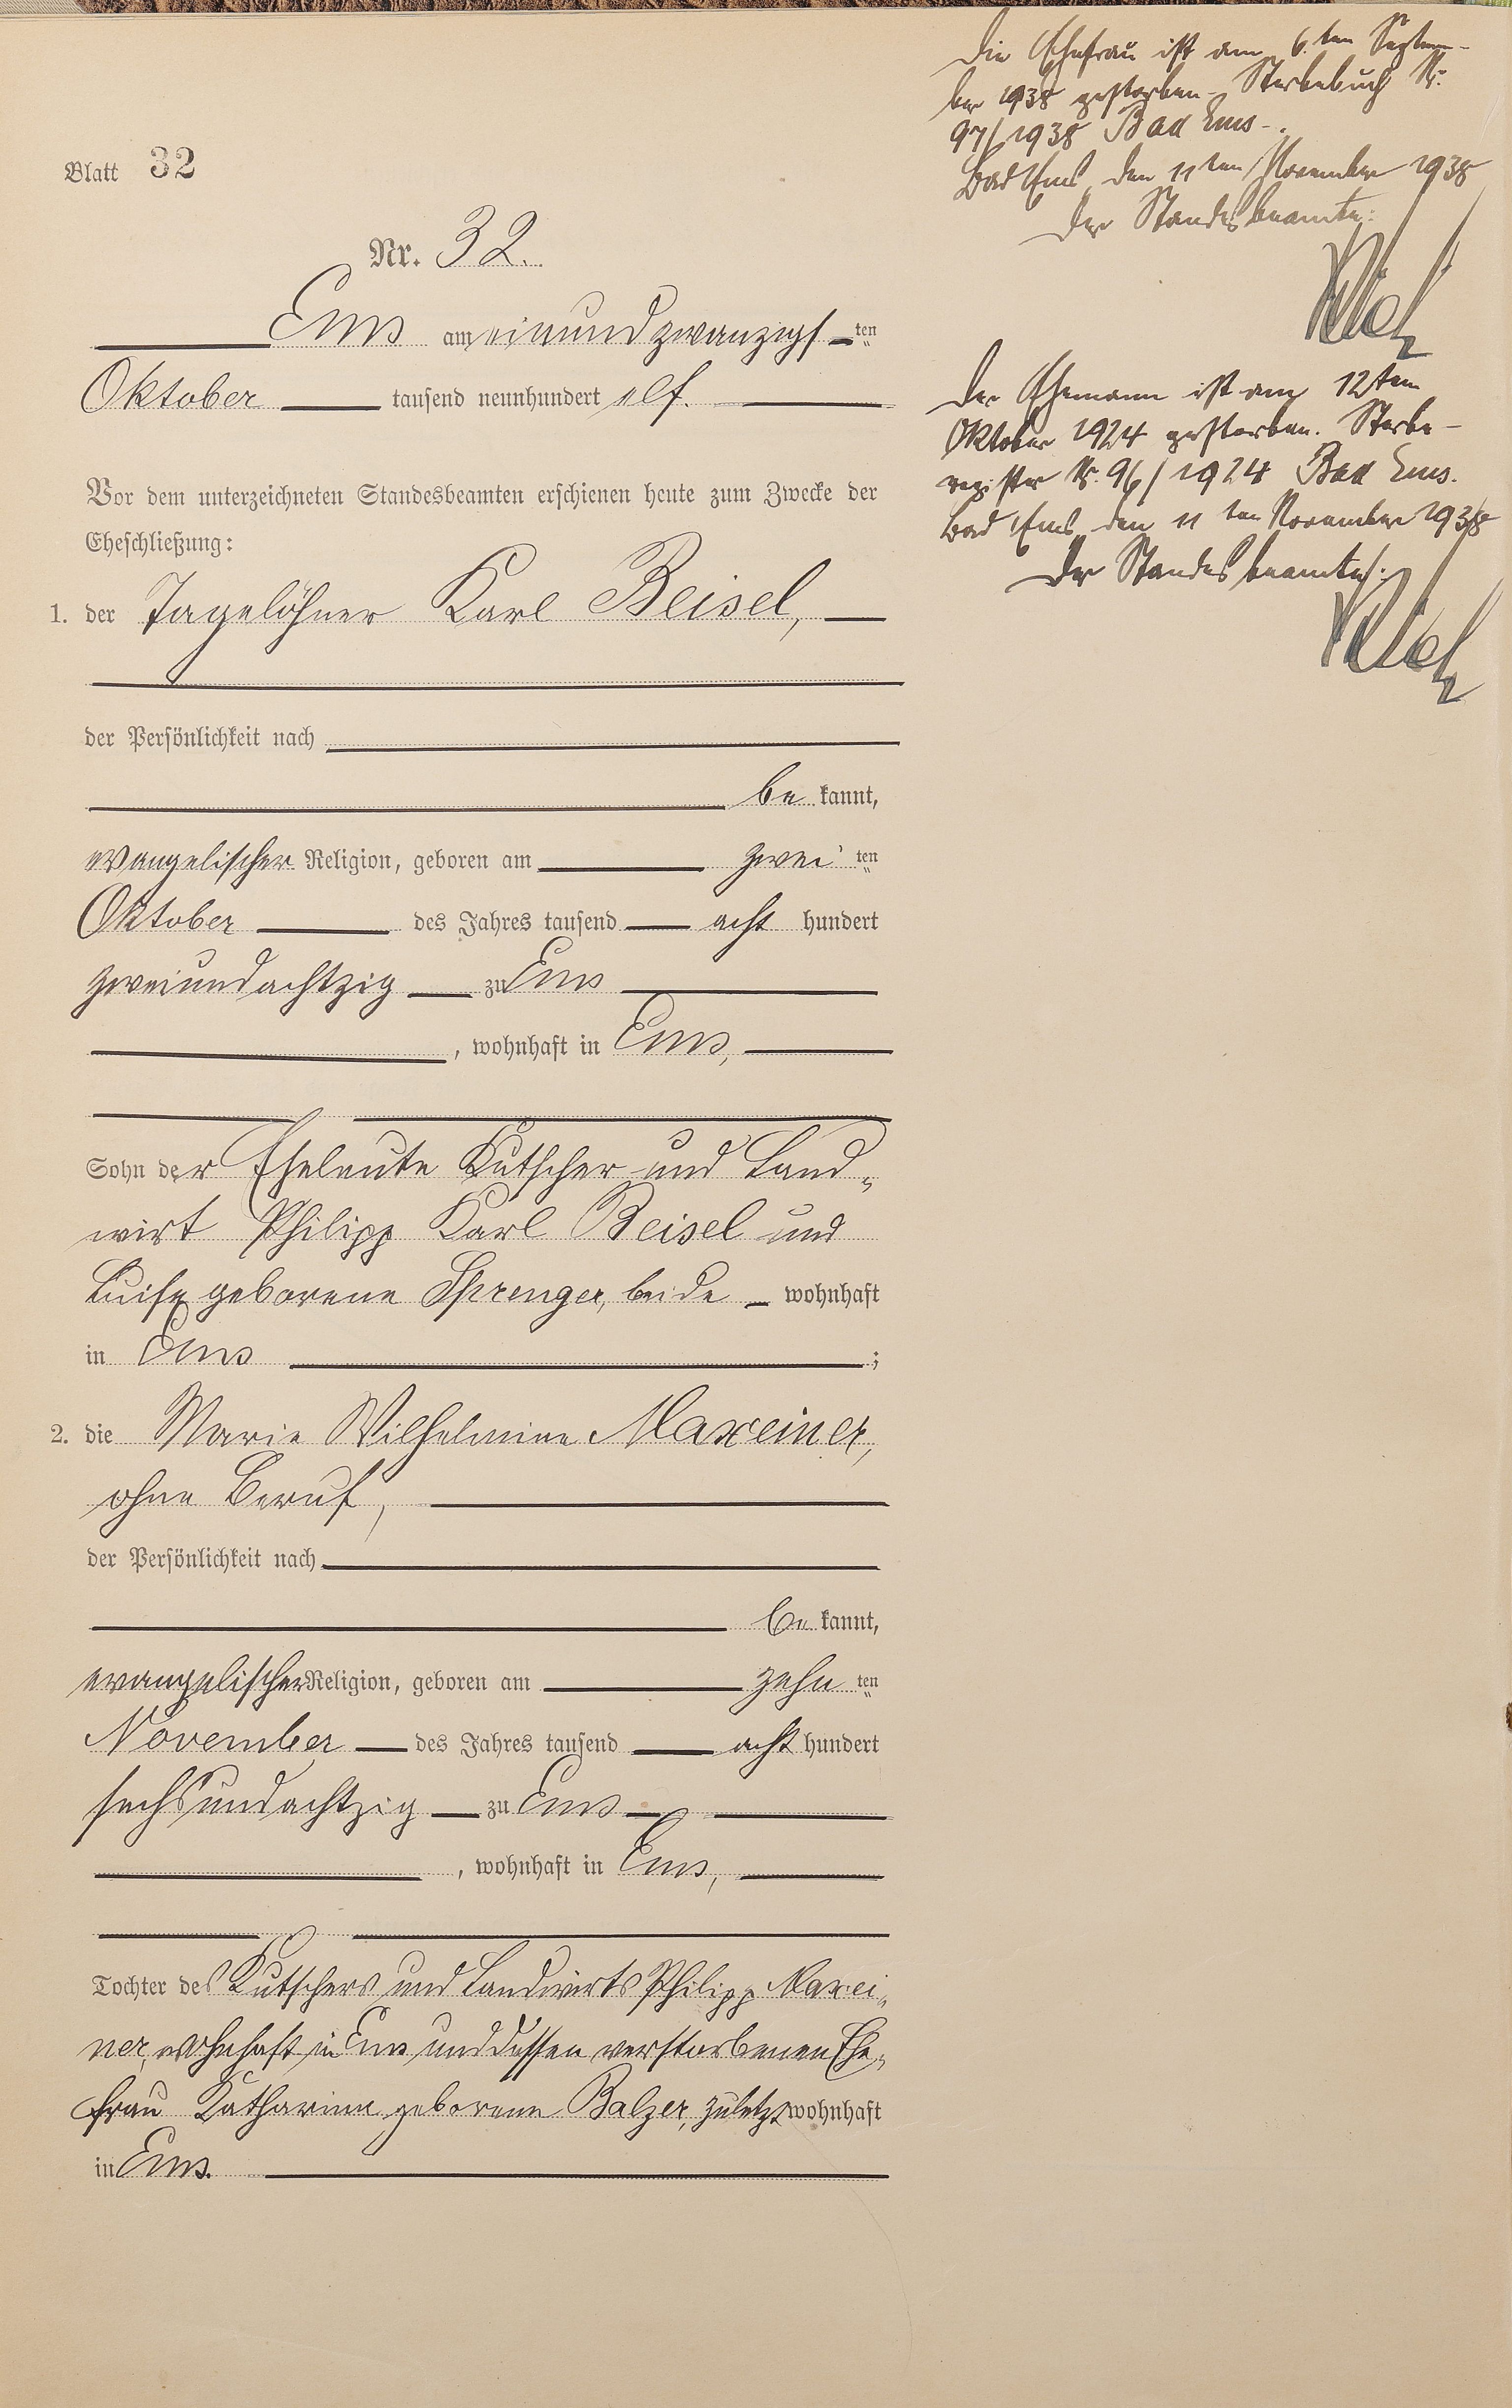 Blatt 32
Nr. 32.
Ems am einundzwanzigsten
Oktober tausend neunhundert elf.
Vor dem unterzeichneten Standesbeamten erschienen heute zum Zwecke der
Eheschließung:
1. der Tagelöhner Karl Beisel,
der Persönlichkeit nach
be kannt,
evangelischer Religion, geboren am zweiten
Oktober des Jahres tausend acht hundert
zweiundachtzig zu Ems
, wohnhaft in Ems,
Sohn der Eheleute Kutscher und Land-
wirt Philipp Karl Beisel und
Luise geborene Sprenger, beide wohnhaft
in Ems ;
2. die Marie Wilhelmine Maxeiner,
ohne Beruf,
der Persönlichkeit nach
be kannt,
evangelischer Religion, geboren am zehnten
November des Jahres tausend acht hundert
sechsundachtzig zu Ems
, wohnhaft in Ems,
Tochter des Kutschers und Landwirts Philipp Maxei-
ner, wohnhaft in Ems und dessen verstorbenen Ehe-
frau Katharina geborene Balzer, zuletzt wohnhaft
in Ems.
Die Ehefrau ist am 6.ten Septem-
ber 1938 gestorben. Sterbebuch Nr.
97/1938 Bad Ems.
Bad Ems den 11ten November 1938
Der Standesbeamte:
Der Ehemann ist am 12ten
Oktober 1924 gestorben. Sterbe-
register Nr. 96/1924 Bad Ems.
Bad Ems den 11ten November 1938
Der Standesbeamte: